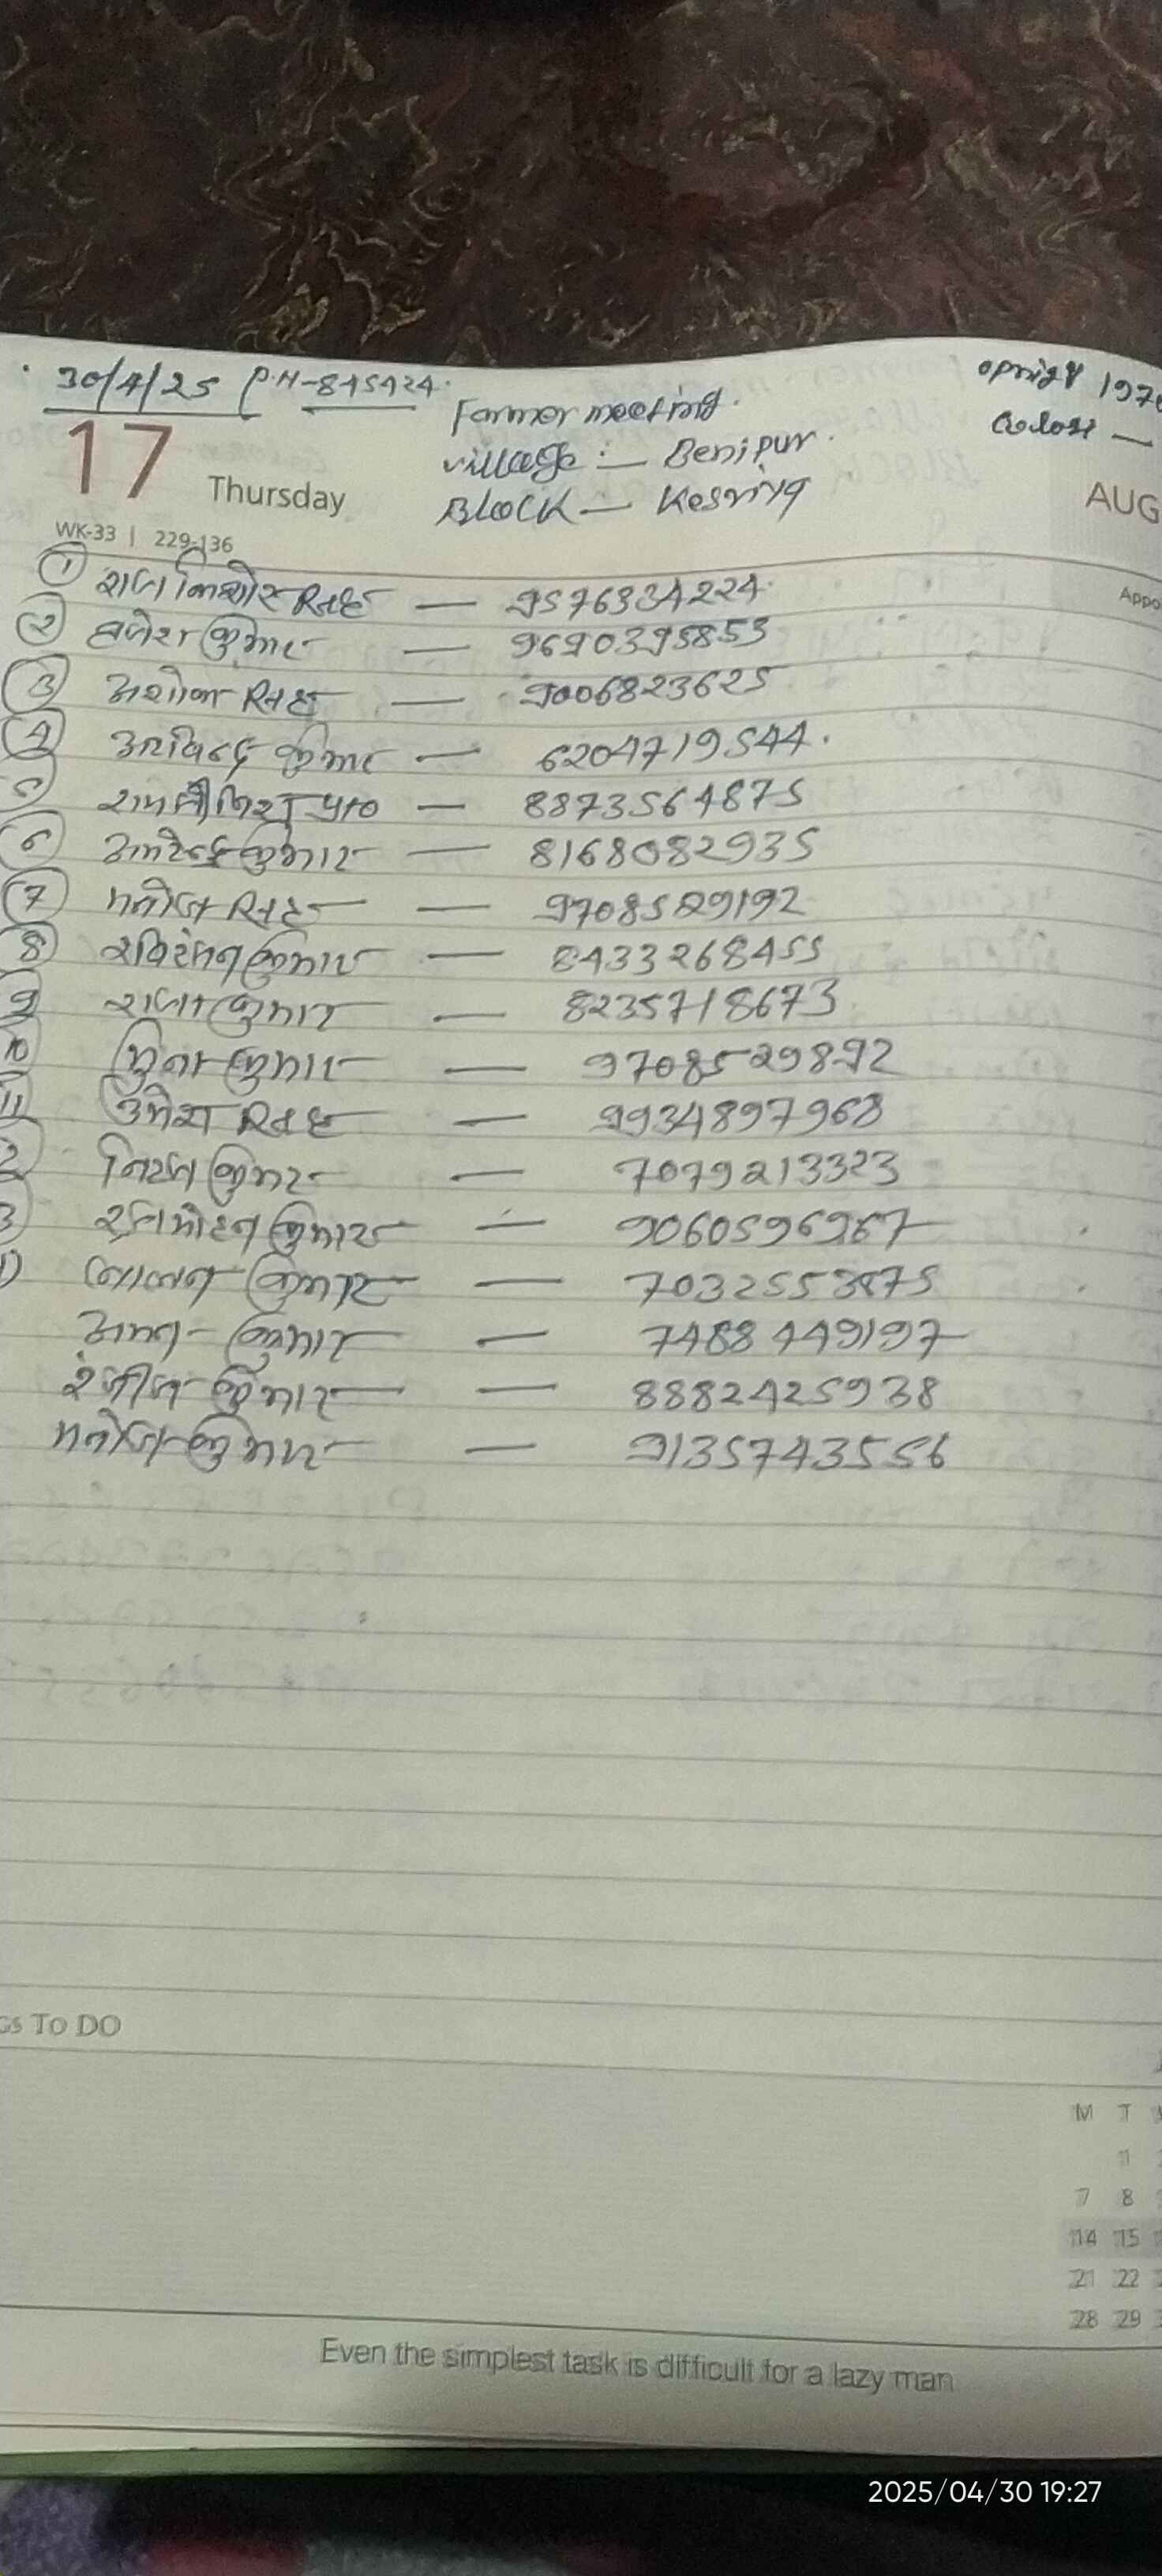 30/4/25 PH-845424.
Farmer meeting.
village :- Benipur.
Block - Kesriya
17 Thursday
AUG
WK-33 | 229-136
Appo
① राज किशोर सिंह — 9576334224.
② ब्रजेश कुमार — 9690395853
③ अशोक सिंह — 9006823625
④ अरविन्द कुमार — 6204719544.
5 — 8873564875
⑥ अमरेन्द्र कुमार — 8168082935
⑦ मनोज सिंह — 9708529192
8 रविरंजन कुमार — 8433268455
9 राजा कुमार — 8235718673
10 कुमार — 9708529892
11 उमेश सिंह — 9934897968
2 कुमार — 7079213323
3 कुमार — 9060596967
कुमार — 7032553875
अमन कुमार — 7488449197
रंजीत कुमार — 8882425938
मनोज कुमार — 9135743556
GS TO DO
M T
11
7 8
14 15
21 22
28 29
Even the simplest task is difficult for a lazy man
2025/04/30 19:27